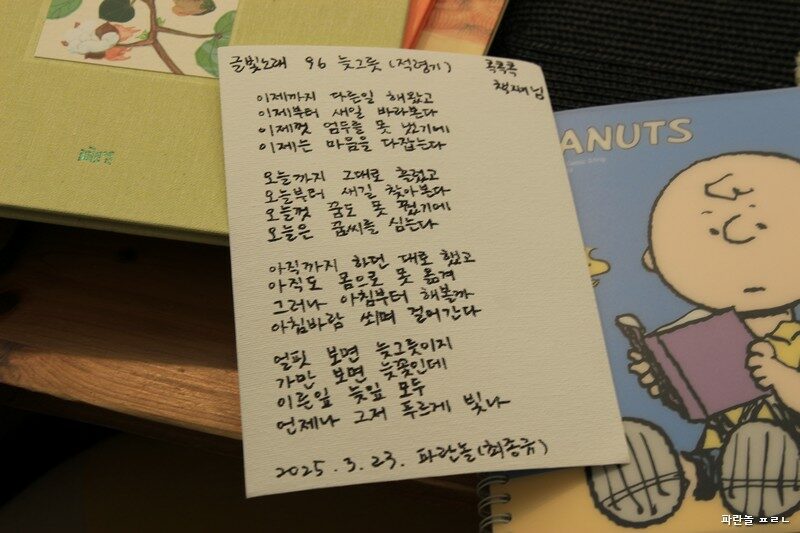 글빛노래 96 늦그릇(적령기)
콕콕콕
책쩨님
이제까지 다른일 해왔고
이제부터 새일 바라본다
이제껏 엄두를 못 냈기에
이제는 마음을 다잡는다
오늘까지 그대로 흘렀고
오늘부터 새길 찾아본다
오늘껏 꿈도 못 꿨기에
오늘은 꿈씨를 심는다
아직까지 하던 대로 했고
아직도 몸으로 못 옮겨
그러나 아침부터 해볼까
아침바람 쐬며 걸어간다
얼핏 보면 늦그릇이지
가만 보면 늦꽃인데
이른잎 늦잎 모두
언제나 그저 푸르게 빛나
2025.3.23. 파란놀(최종규)
PEANUTS
파란놀 ㅍㄹㄴ